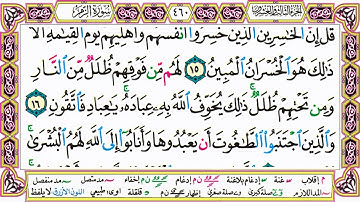 سورة الزمر
٤٦٠
قل إن الخسرين الذين خسروا أنفسهم وأهليهم يوم القيمة ألا
ذلك هو الخسران المبين ١٥ لهم من فوقهم ظلل من النار
ومن تحتهم ظلل ذلك يخوف الله به عباده يعباد فاتقون ١٦
والذين اجتنبوا الطغوت أن يعبدوها وأنابوا إلى الله لهم البشرى